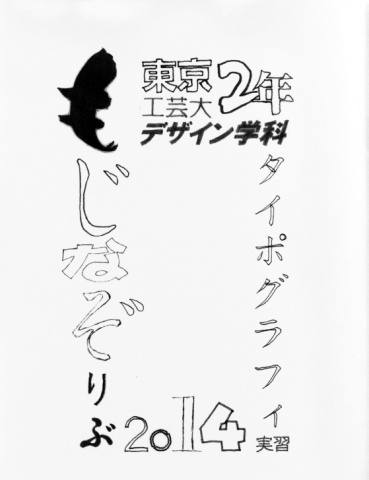 もじなぞりぶ
東京
工芸大
2年
デザイン学科
タイポグラフィ
実習
2014